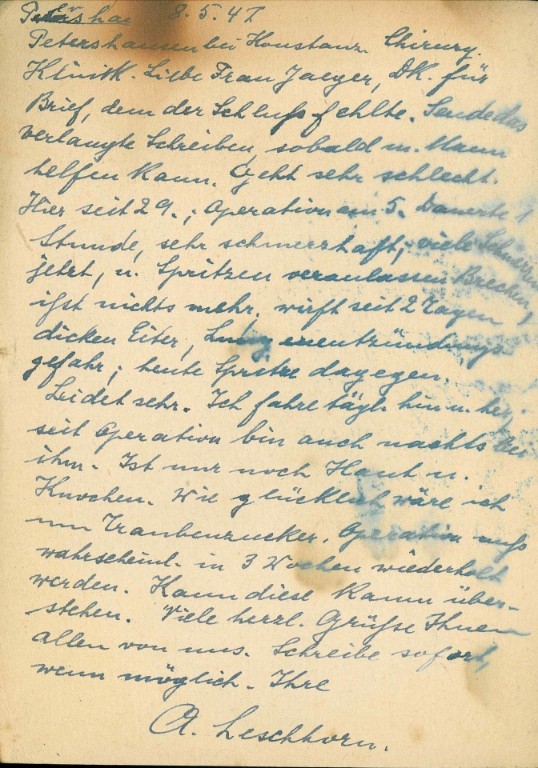 Petershau 8.5.47
Petershausen bei Konstanz. Chirurg.
Klinik. Liebe Frau Jaeger, DK. für
Brief, dem der Schluß fehlte. Sende das
verlangte Schreiben, sobald m. Mann
helfen kann. Geht sehr schlecht.
Hier seit 29.; Operation am 5. Dauerte 1
Stunde, sehr schmerzhaft; viele Schmerzen
jetzt, u. Spritzen veranlassen Brechen,
ißt nichts mehr, wirft seit 2 Tagen
dicken Eiter, Lungenentzündungs-
gefahr; heute Spritze dagegen.
Leidet sehr. Ich fahre tägl. hin u. her,
seit Operation bin auch nachts bei
ihm. Ist nur noch Haut u.
Knochen. Wie glücklich wäre ich
um Traubenzucker. Operation muß
wahrscheinl. in 3 Wochen wiederholt
werden. Kann diese kaum über-
stehen. Viele herzl. Grüße Ihnen
allen von uns. Schreibe sofort,
wenn möglich. Ihre
A. Leschhorn.